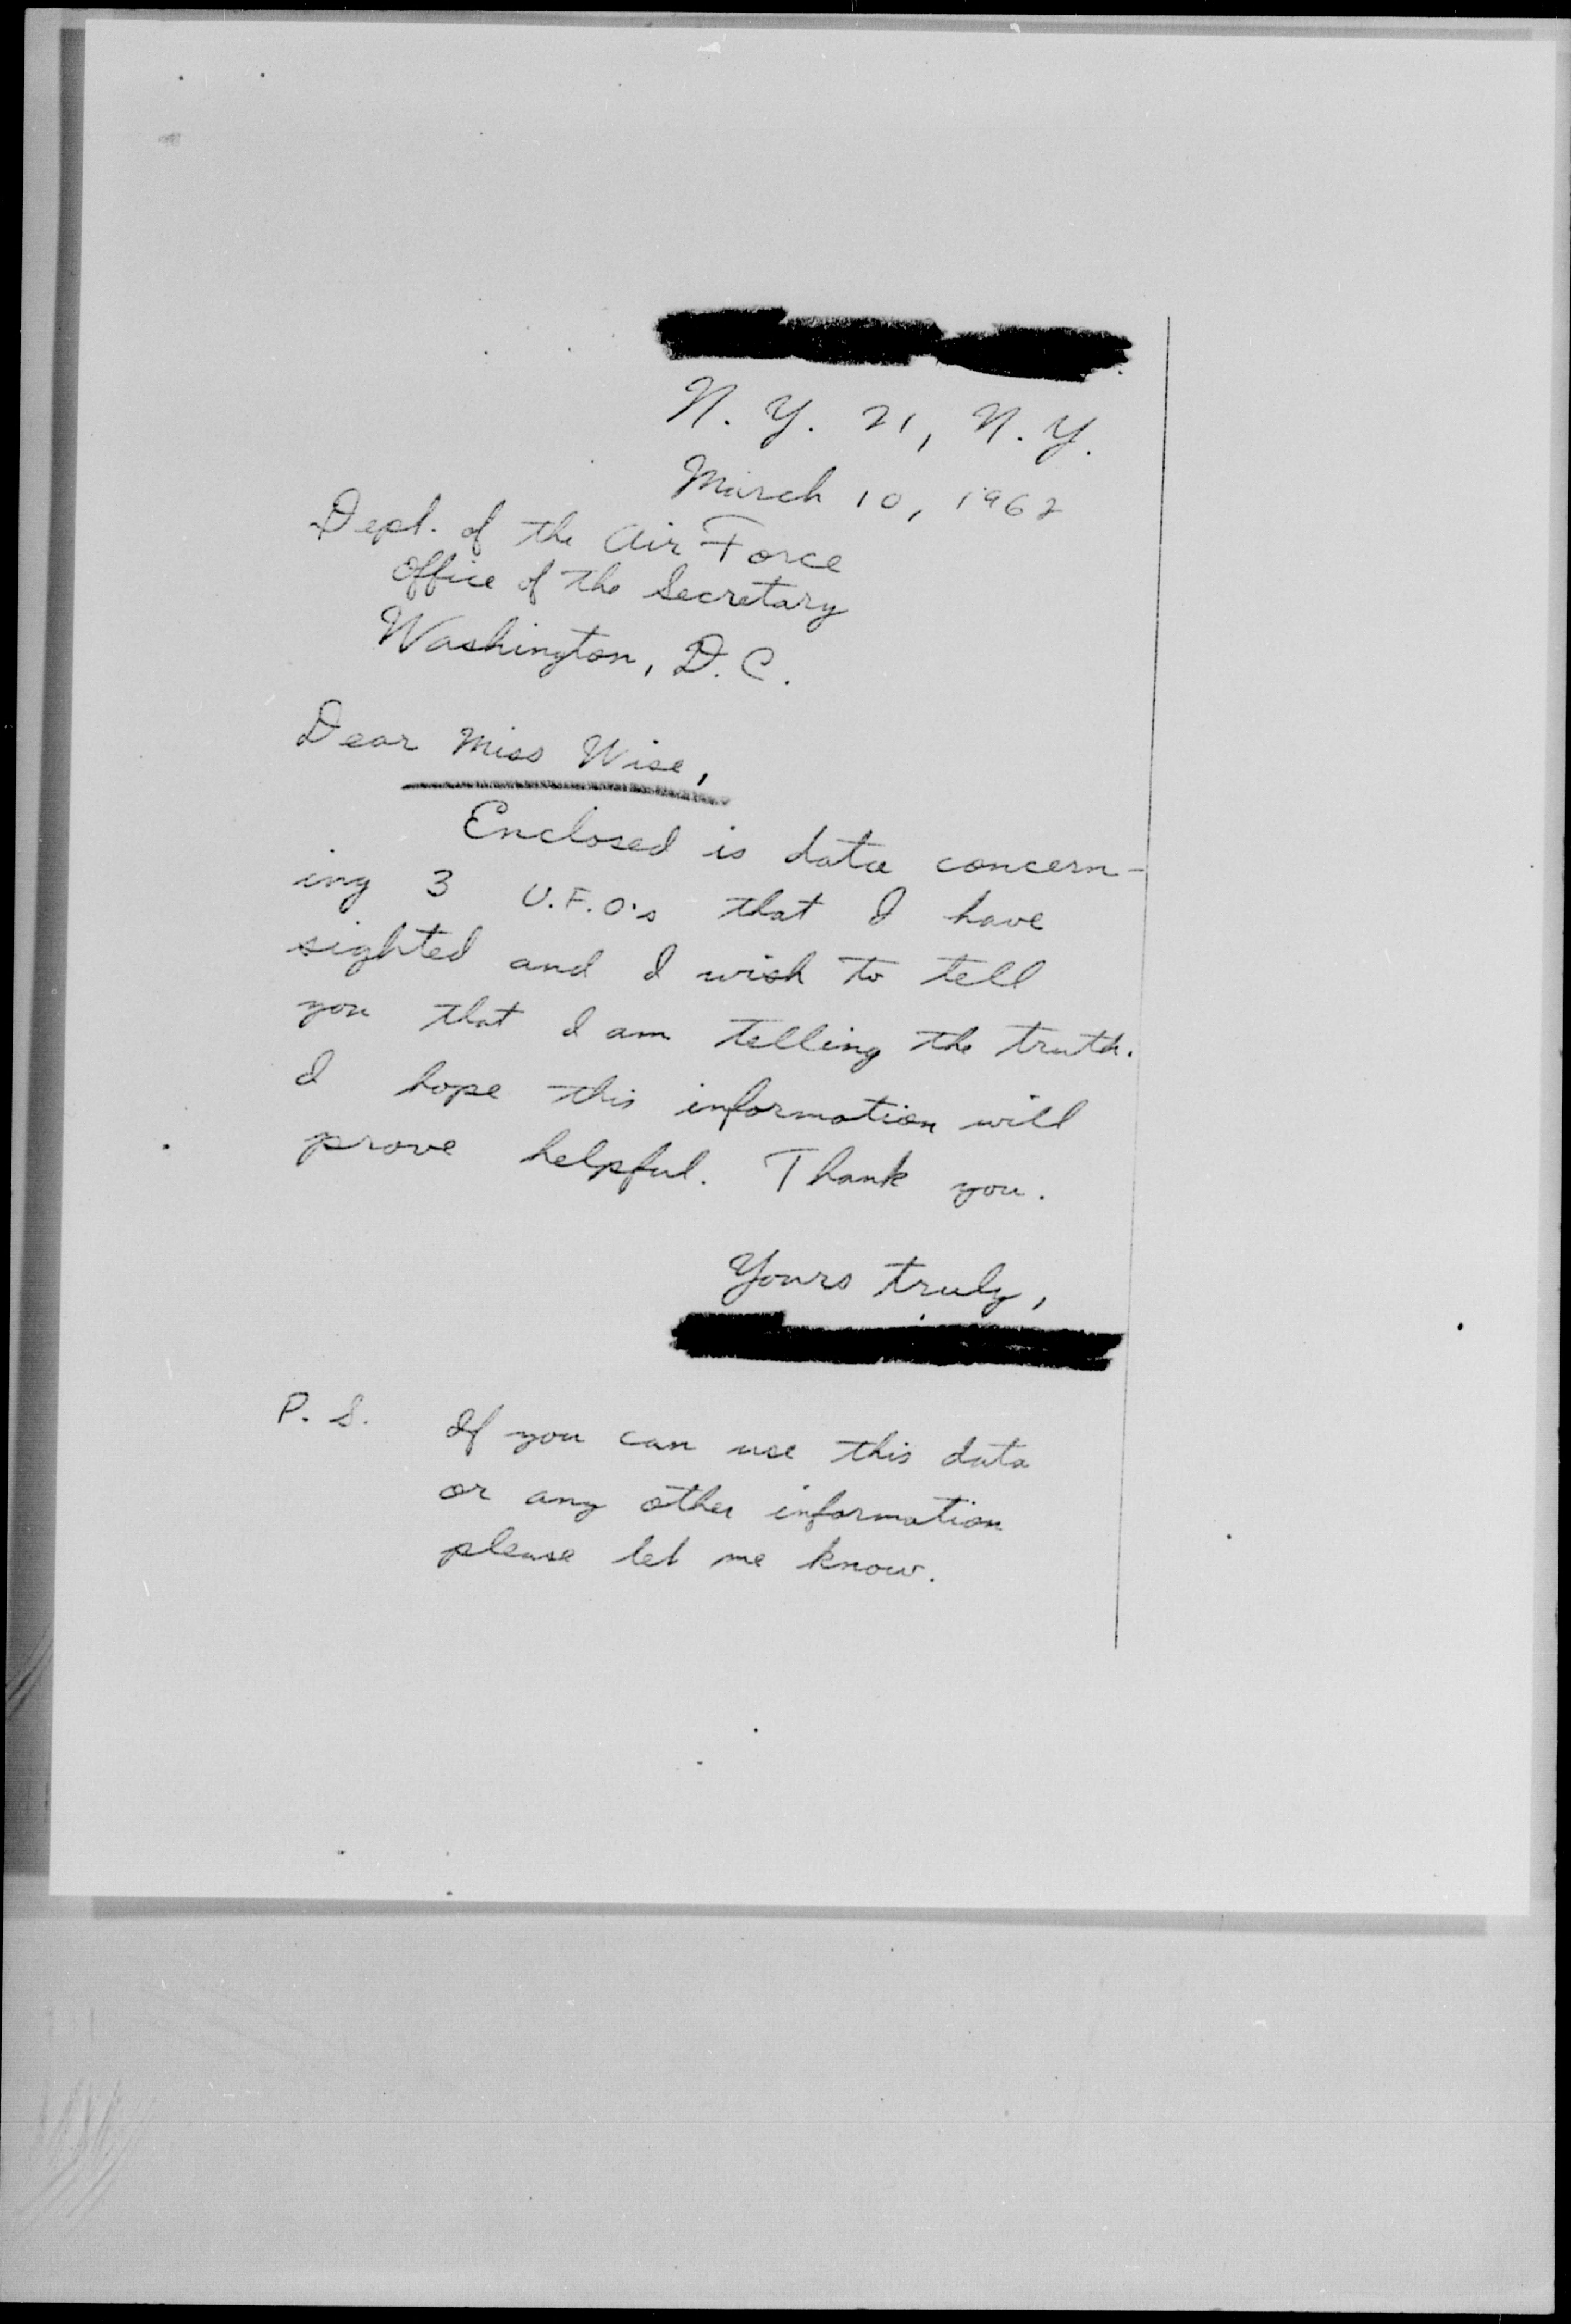 N. Y. 21, N. Y.
March 10, 1962
Dept. of the Air Force
Office of the Secretary
Washington, D. C.
Dear Miss Wise,
Enclosed is data concern-
ing 3 U.F.O.'s that I have
sighted and I wish to tell
you that I am telling the truth.
I hope this information will
prove helpful. Thank you.
Yours truly,
P. S. If you can use this data
or any other information
please let me know.